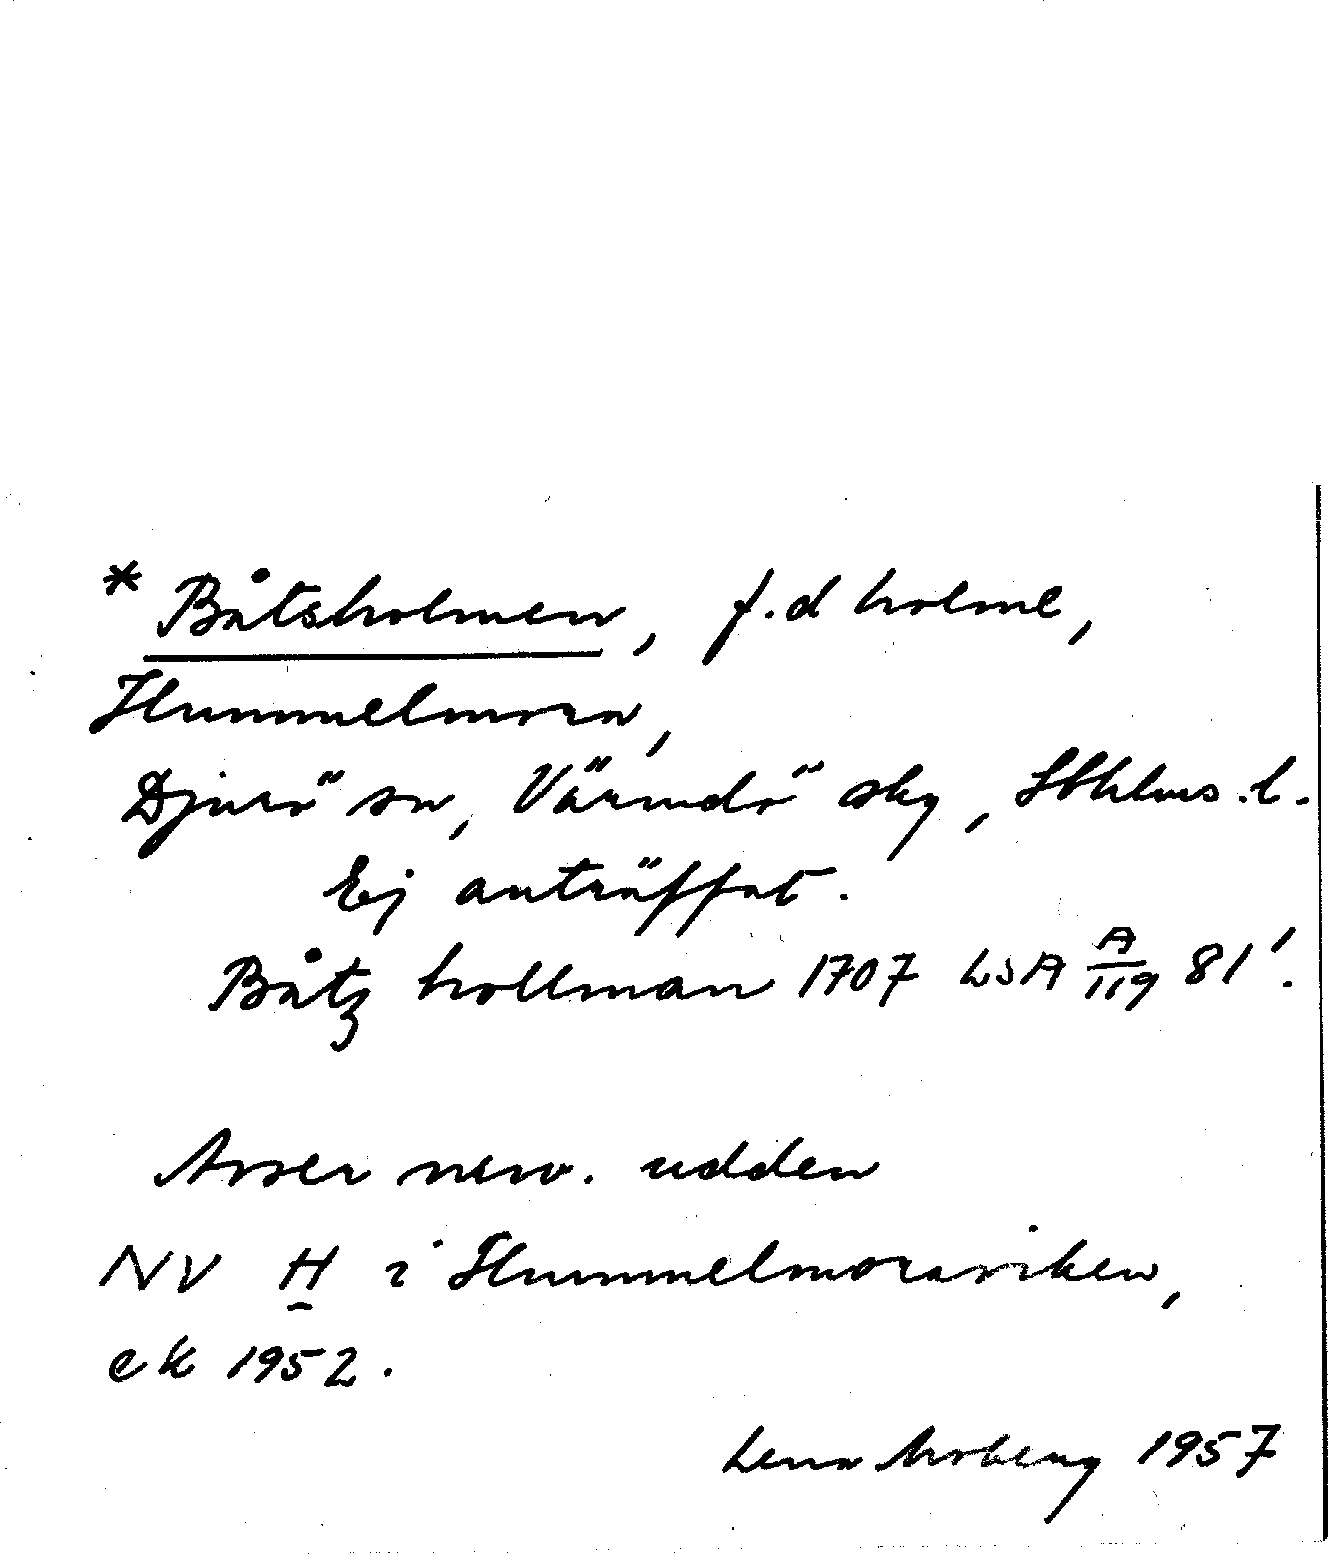 * Båtsholmen, f.d holme,
Hummelmora,
Djurö sn, Värmdö sky, Sthlms. l.
Ej anträffat.
Båtz hollman 1707 LSA A/119 81'.
Avser nuv. udden
NV H i Hummelmoraviken,
ek 1952.
Lena Moberg 1957